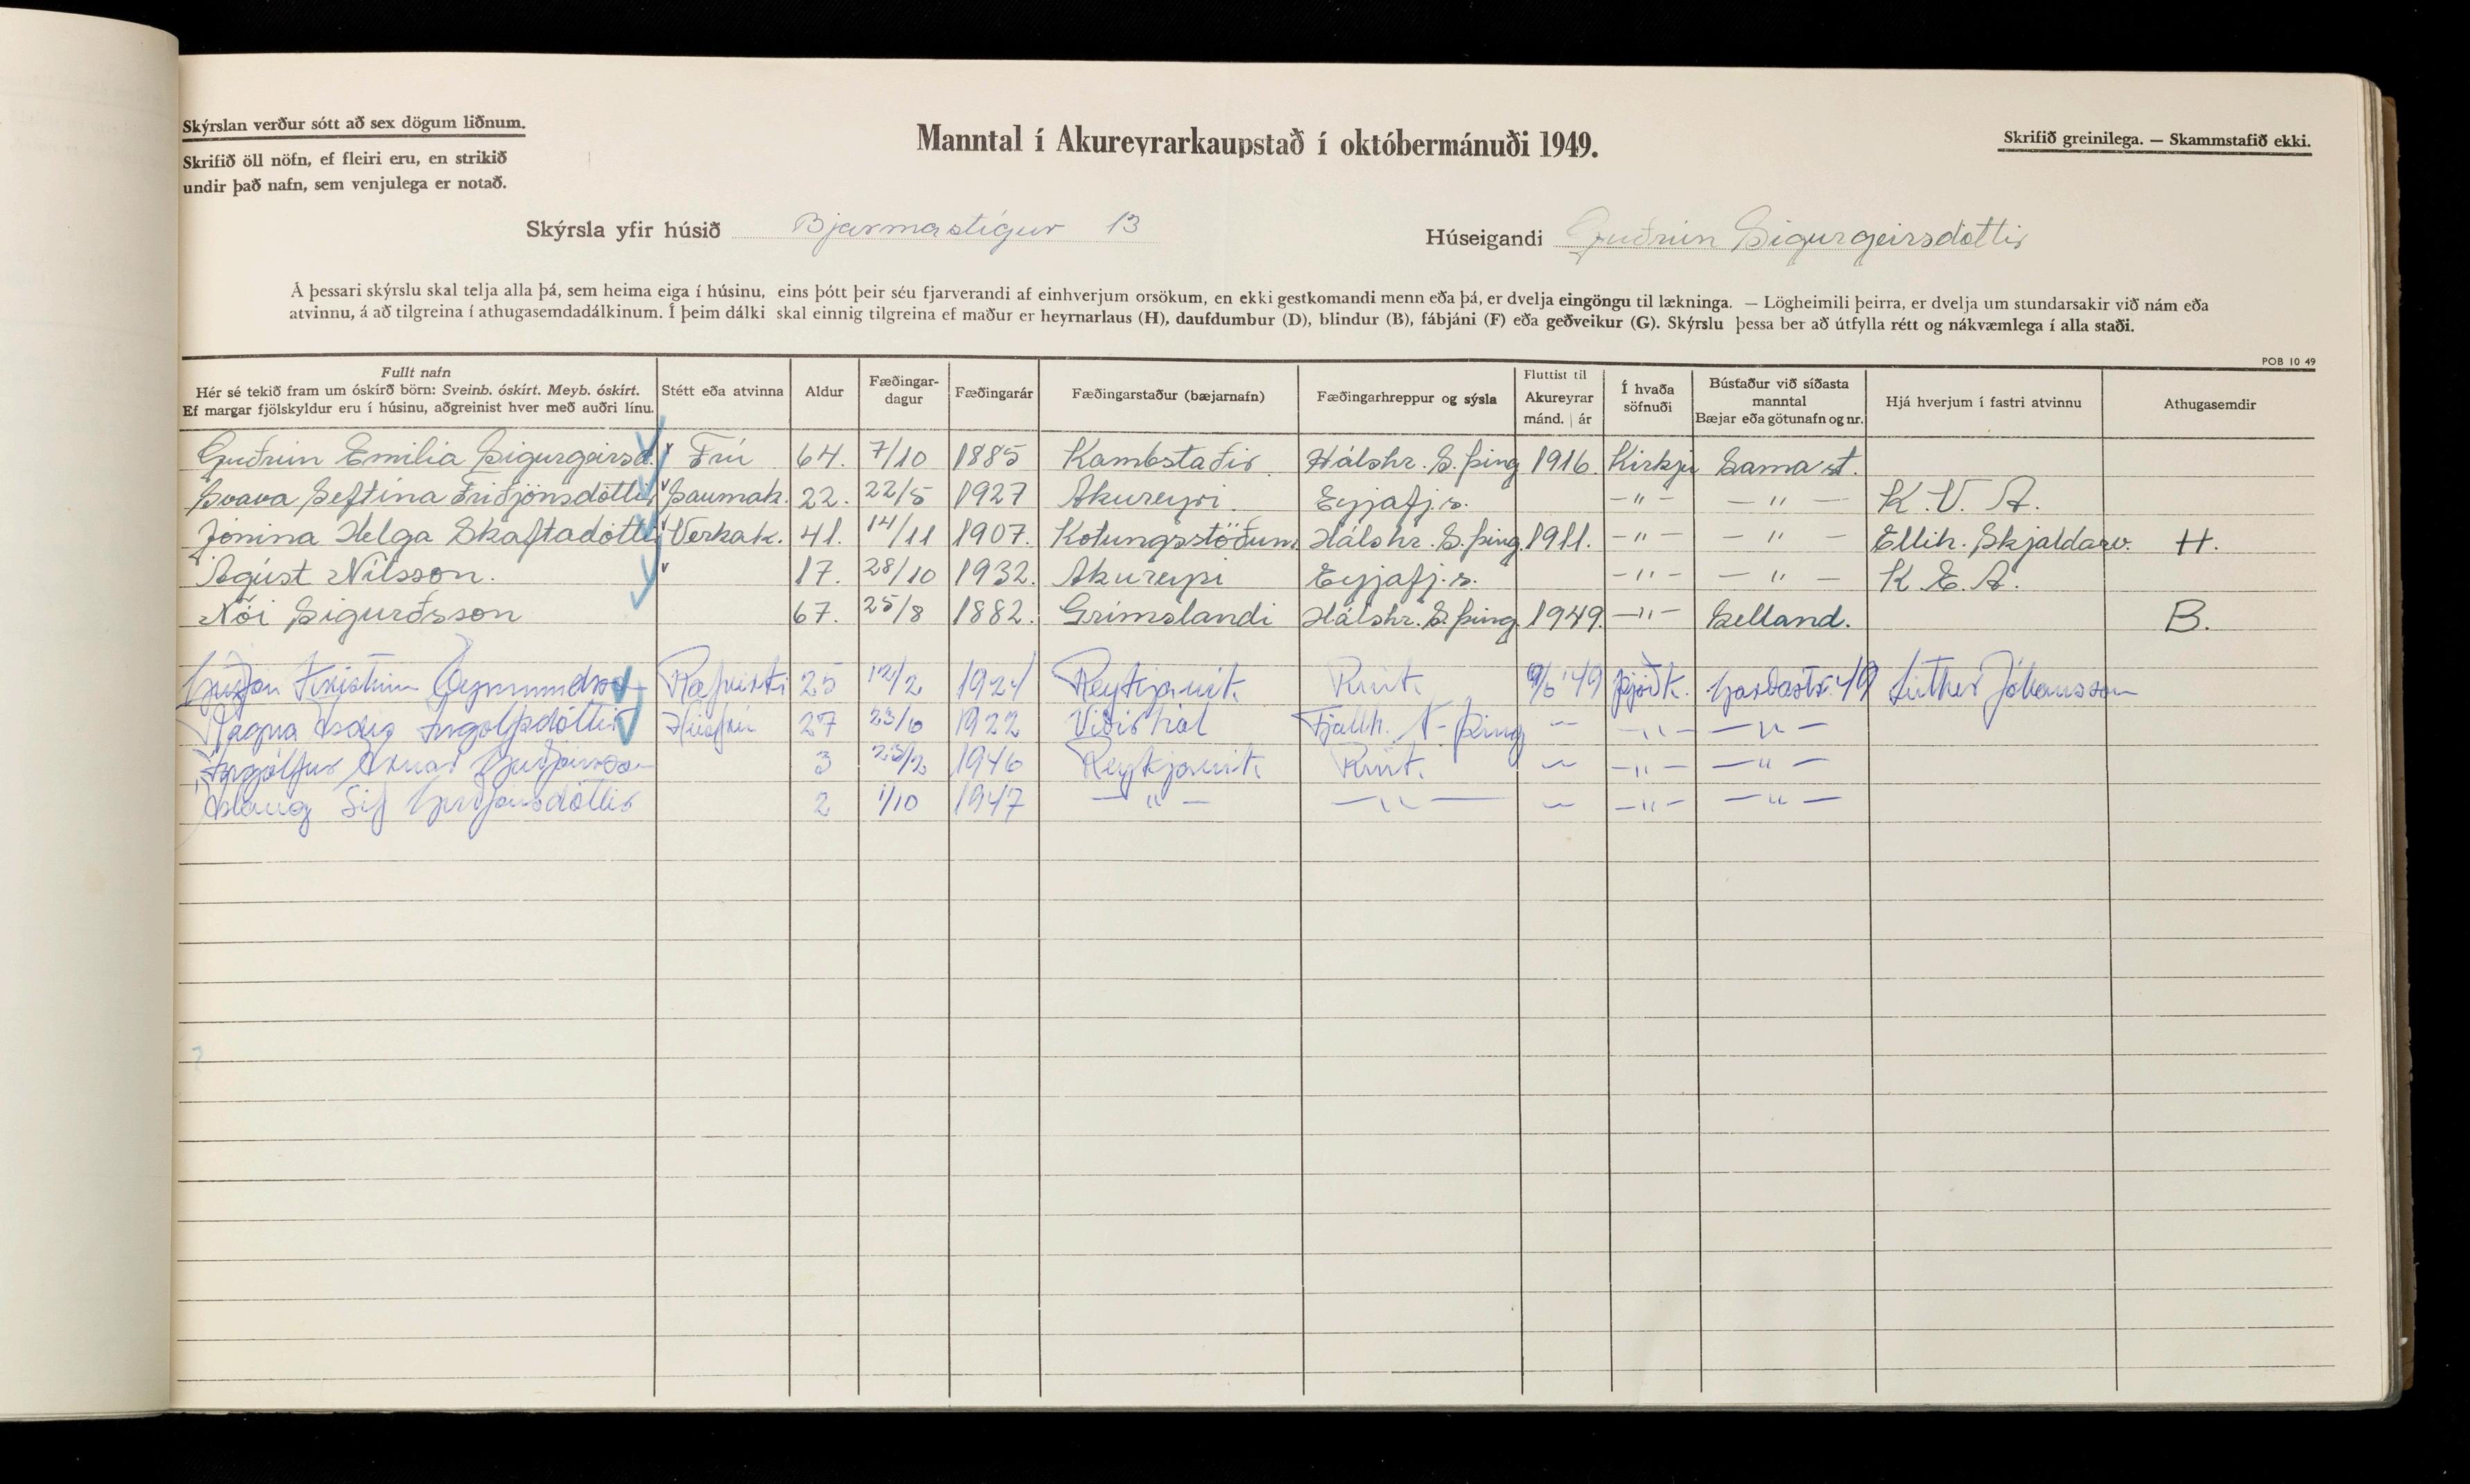 Skýrslan verður sótt að sex dögum liðnum.
Skrifið öll nöfn, ef fleiri eru, en strikið
undir það nafn, sem venjulega er notað.
Manntal í Akureyrarkaupstað í októbermánuði 1949.
Skrifið greinilega. — Skammstafið ekki.
Skýrsla yfir húsið Bjarmastígur 13
Húseigandi Guðrún Sigurgeirsdóttir
Á þessari skýrslu skal telja alla þá, sem heima eiga í húsinu, eins þótt þeir séu fjarverandi af einhverjum orsökum, en ekki gestkomandi menn eða þá, er dvelja eingöngu til lækninga. — Lögheimili þeirra, er dvelja um stundarsakir við nám eða
atvinnu, á að tilgreina í athugasemdadálkinum. Í þeim dálki skal einnig tilgreina ef maður er heyrnarlaus (H), daufdumbur (D), blindur (B), fábjáni (F) eða geðveikur (G). Skýrslu þessa ber að útfylla rétt og nákvæmlega í alla staði.
POB 10 49
Fullt nafn
Hér sé tekið fram um óskírð börn: Sveinb. óskírt. Meyb. óskírt.
Ef margar fjölskyldur eru í húsinu, aðgreinist hver með auðri línu.
Stétt eða atvinna
Aldur
Fæðingar-
dagur
Fæðingarár
Fæðingarstaður (bæjarnafn)
Fæðingarhreppur og sýsla
Fluttist til
Akureyrar
mánd. | ár
Í hvaða
söfnuði
Bústaður við síðasta
manntal
Bæjar eða götunafn og nr.
Hjá hverjum í fastri atvinnu
Athugasemdir
Guðrún Emilía Sigurgeirsd. Frú 64. 7/10 1885 Kambstaðir Hálshr. S. þing 1916. Kirkju Sama st.
Svava Seftína Friðjónsdóttir Saumak. 22. 22/5 1927 Akureyri Eyjafj.s. -"- -"- K. V. A.
Jónína Helga Skaftadóttir Verkak. 41. 14/11 1907. Kotungsstöðum Hálshr. S. þing. 1911. -"- -"- Ellih. Skjaldarv. H.
Ágúst Nílsson. 17. 28/10 1932. Akureyri Eyjafj.s. -"- -"- K. E. A.
Nói Sigurðsson 67. 25/8 1882. Grímslandi Hálshr. S. þing. 1949. -"- Selland. B.
Guðjón Kristinn Eymundsson Rafvirki 25 12/2 1924 Reykjavík Rvík. '49 Þjóðk. Garðastr. 49 Lúther Jóhannsson
Ragna Áslaug Ingólfsdóttir Húsfrú 27 23/10 1922 Víðirhól Fjallh. N-þing — -"- -"-
Ingólfur Arnar Guðjónsson 3 23/2 1946 Reykjavík Rvík. — -"- -"-
Áslaug Sif Guðjónsdóttir 2 1/10 1947 -"- -"- — -"- -"-